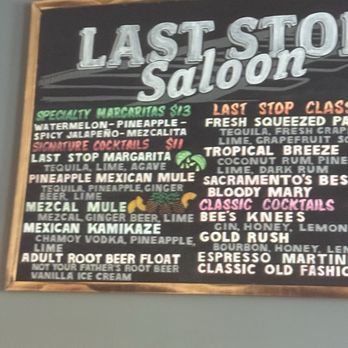 LAST STO
Saloon
SPECIALTY MARGARITAS $13
WATERMELON - PINEAPPLE -
SPICY JALAPEÑO - MEZCALITA
SIGNATURE COCKTAILS $11
LAST STOP MARGARITA
TEQUILA, LIME, AGAVE
PINEAPPLE MEXICAN MULE
TEQUILA, PINEAPPLE, GINGER
BEER, LIME
MEZCAL MULE
MEZCAL, GINGER BEER, LIME
MEXICAN KAMIKAZE
CHAMOY VODKA, PINEAPPLE,
LIME
ADULT ROOT BEER FLOAT
NOT YOUR FATHER'S ROOT BEER
VANILLA ICE CREAM
LAST STOP CLASS
FRESH SQUEEZED PA
TEQUILA, FRESH GRAP
LIME, GRAPEFRUIT SO
TROPICAL BREEZE
COCONUT RUM, PINE
LIME, DARK RUM
SACRAMENTO'S BES
BLOODY MARY
CLASSIC COCKTAILS
BEE'S KNEES
GIN, HONEY, LEMON
GOLD RUSH
BOURBON, HONEY, LEM
ESPRESSO MARTIN
CLASSIC OLD FASHIO